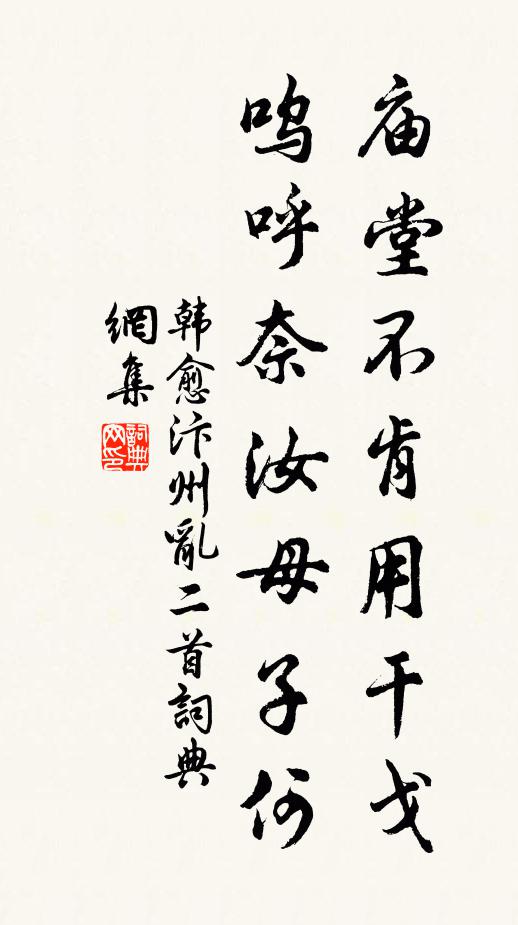 庙堂不肯用干戈
呜呼奈汝母子何
韩愈汴州亂二首詞典
網集
詞典网印